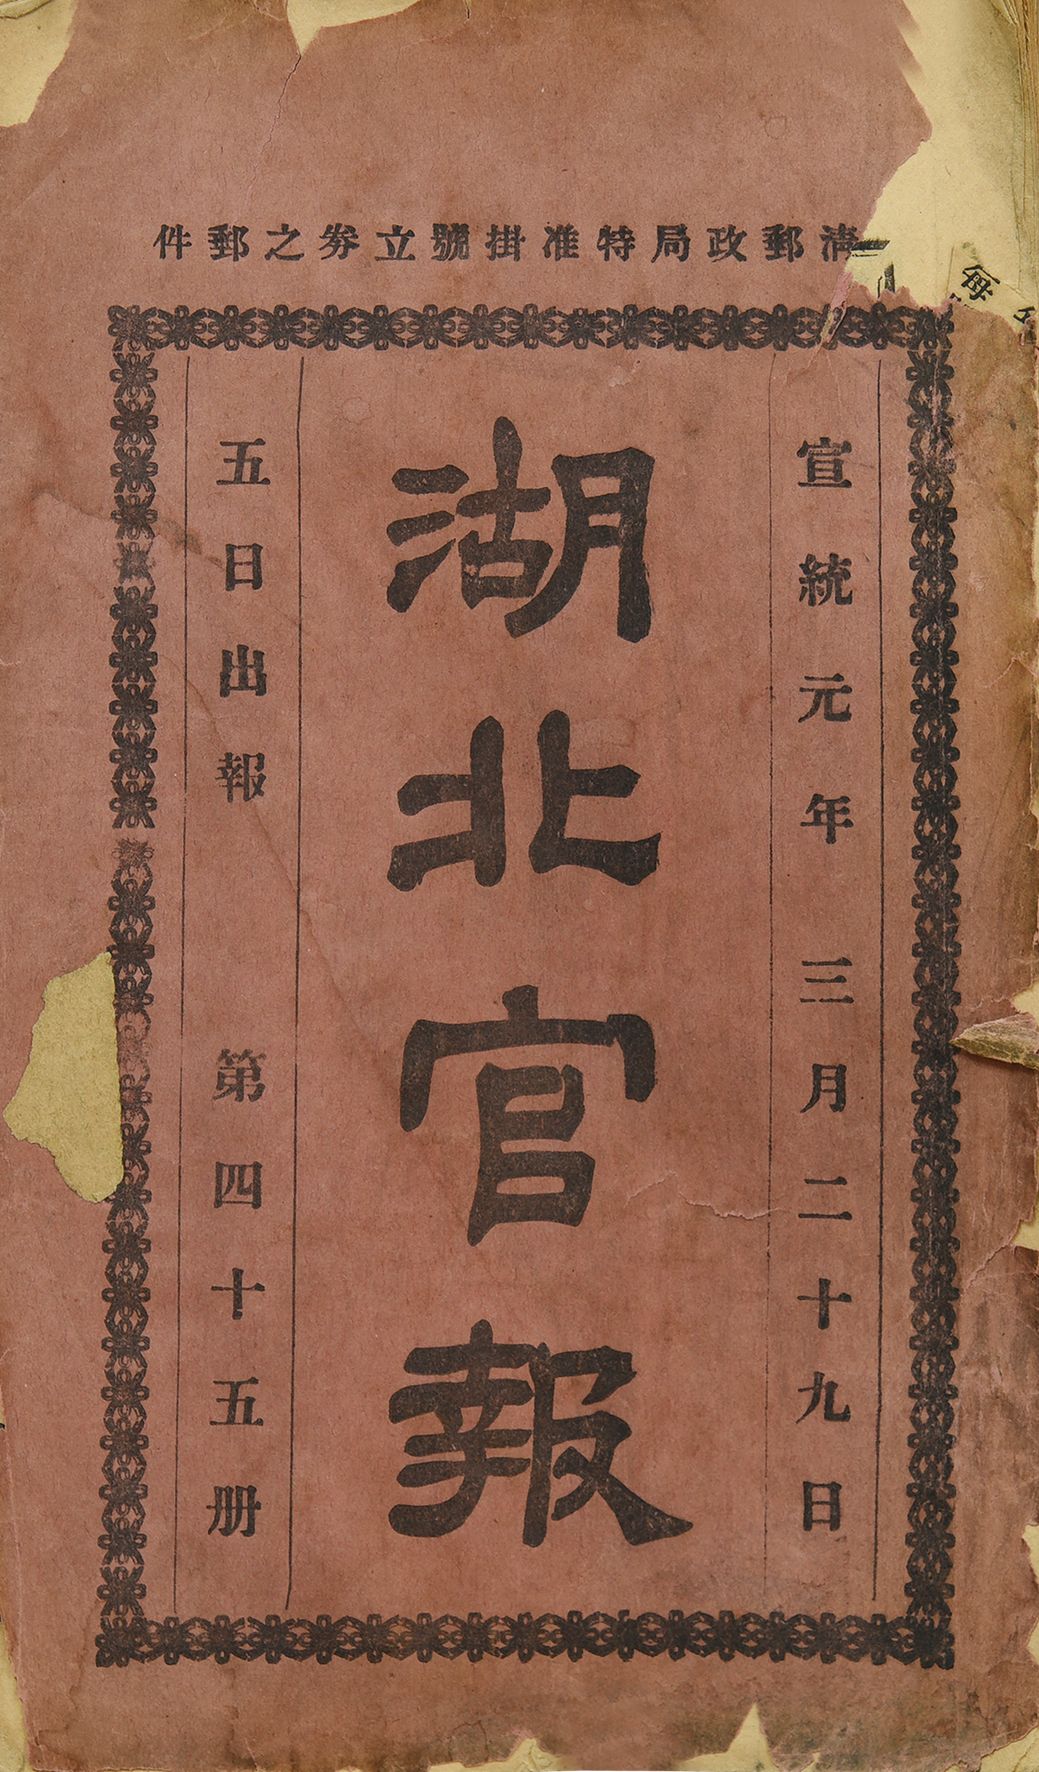 清郵政局特准掛號立券之郵件
宣統元年 三月二十九日
湖北官報
五日出報 第四十五册
每